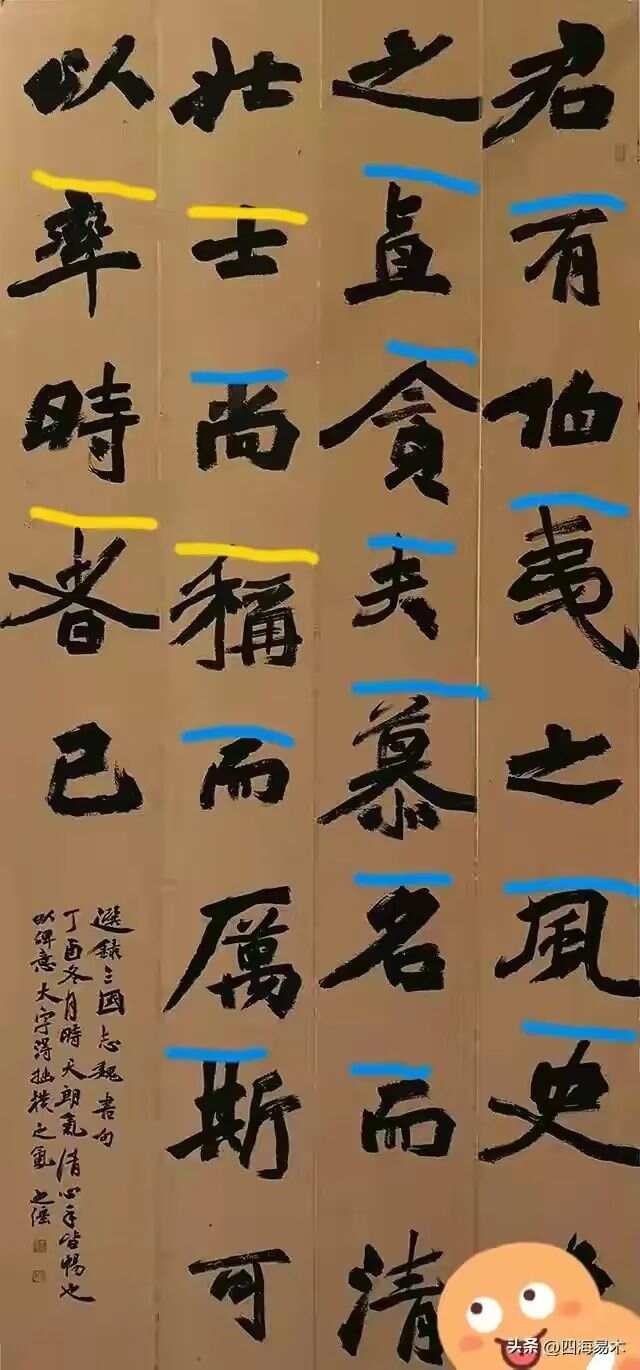 君有伯夷之風史
之直貪夫慕名而清
壯士尚稱而厲斯可
以率時者已
選錄三國志魏書句
丁酉冬月時天朗氣清心手皆暢也
以碑意大字得拙樸之氣
头条 @四海易木